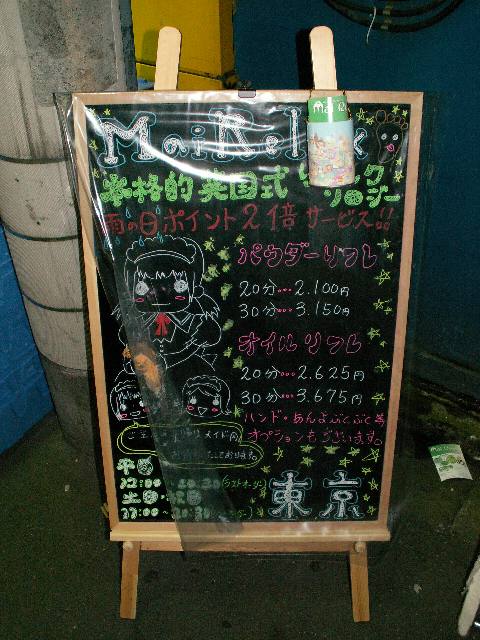 MaiRelax
本格的英国式リフレク
ソロジー
雨の日ポイント2倍サービス!!
パウダーリフレ
20分…2.100円
30分…3.150円
オイルリフレ
20分…2.625円
30分…3.675円
ハンド・あんよぶくぶく等
オプションもございます。
平日
12:00~20:30(ラストオーダー)
土日・祝日
東京